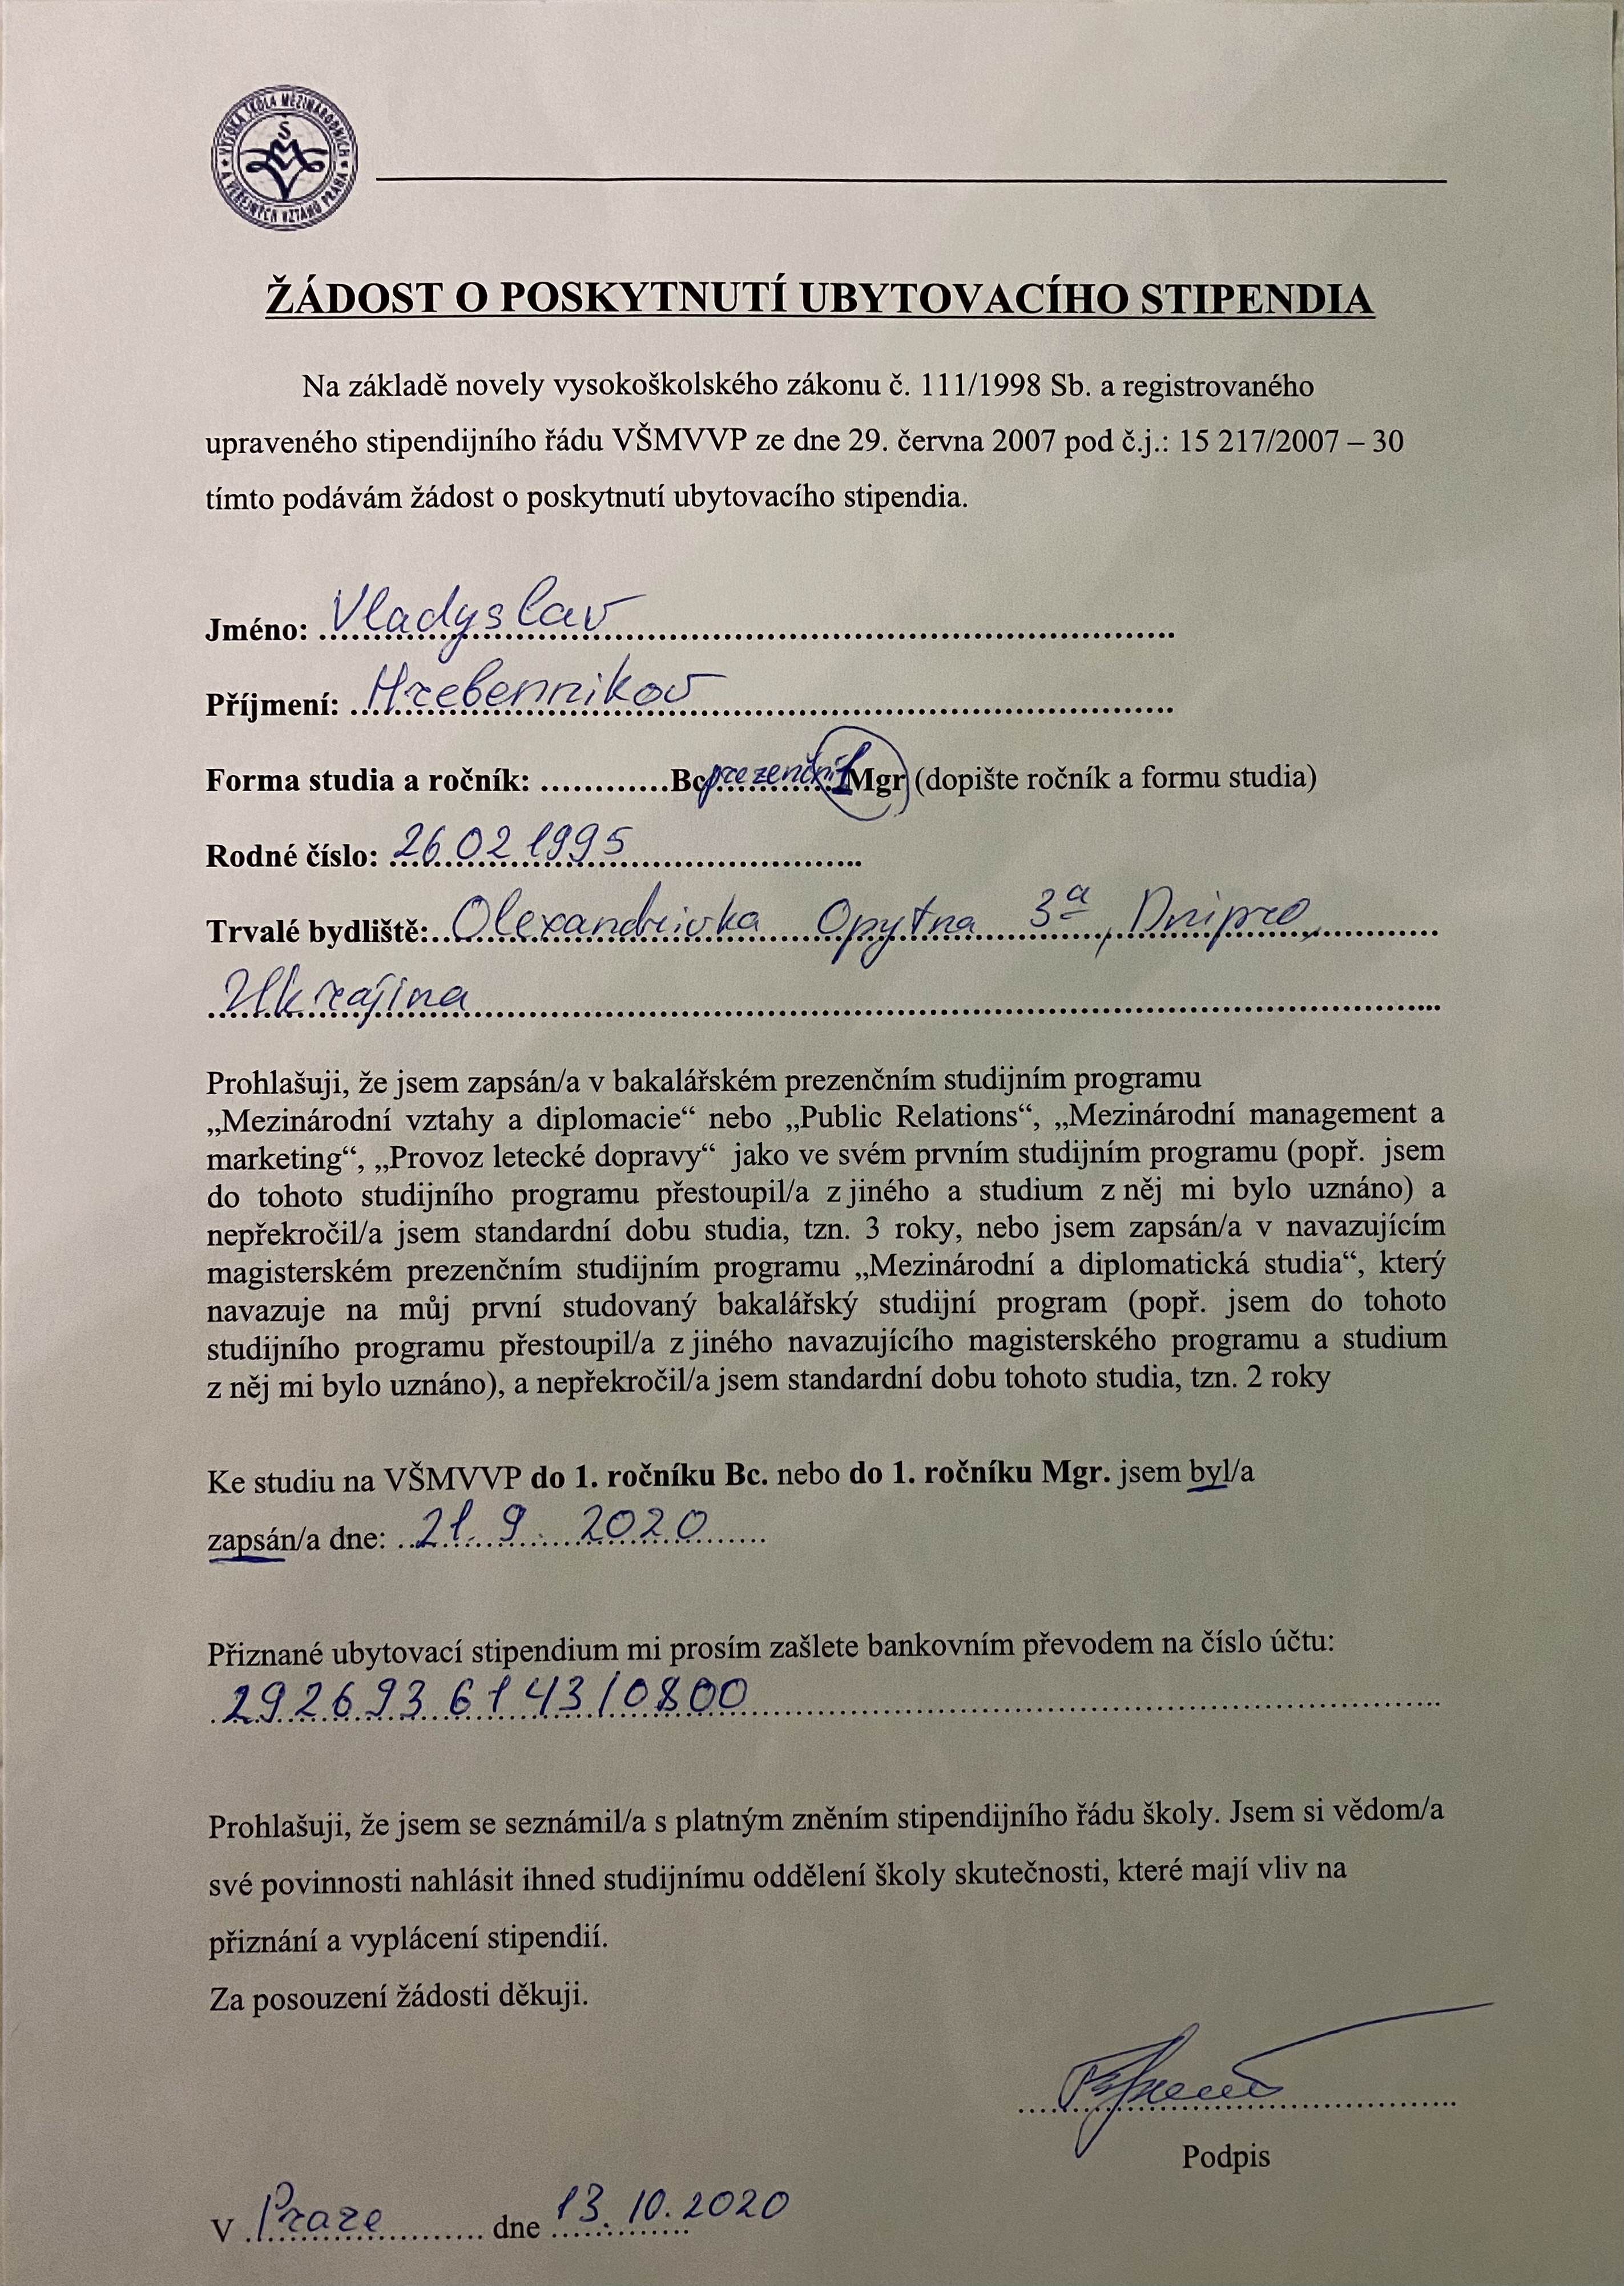 VYSOKÁ ŠKOLA MEZINÁRODNÍCH A VEŘEJNÝCH VZTAHŮ PRAHA
Š
ŽÁDOST O POSKYTNUTÍ UBYTOVACÍHO STIPENDIA
Na základě novely vysokoškolského zákonu č. 111/1998 Sb. a registrovaného
upraveného stipendijního řádu VŠMVVP ze dne 29. června 2007 pod č.j.: 15 217/2007 – 30
tímto podávám žádost o poskytnutí ubytovacího stipendia.
Jméno: Vladyslav
Příjmení: Hrebennikov
Forma studia a ročník: ............Bc prezenční 1 Mgr (dopište ročník a formu studia)
Rodné číslo: 26.02.1995
Trvalé bydliště: Olexandrivka Opytna 3a, Dnipro,
Ukrajina
Prohlašuji, že jsem zapsán/a v bakalářském prezenčním studijním programu
„Mezinárodní vztahy a diplomacie“ nebo „Public Relations“, „Mezinárodní management a
marketing“, „Provoz letecké dopravy“ jako ve svém prvním studijním programu (popř. jsem
do tohoto studijního programu přestoupil/a z jiného a studium z něj mi bylo uznáno) a
nepřekročil/a jsem standardní dobu studia, tzn. 3 roky, nebo jsem zapsán/a v navazujícím
magisterském prezenčním studijním programu „Mezinárodní a diplomatická studia“, který
navazuje na můj první studovaný bakalářský studijní program (popř. jsem do tohoto
studijního programu přestoupil/a z jiného navazujícího magisterského programu a studium
z něj mi bylo uznáno), a nepřekročil/a jsem standardní dobu tohoto studia, tzn. 2 roky
Ke studiu na VŠMVVP do 1. ročníku Bc. nebo do 1. ročníku Mgr. jsem byl/a
zapsán/a dne: 21. 9. 2020
Přiznané ubytovací stipendium mi prosím zašlete bankovním převodem na číslo účtu:
2926936143/0800
Prohlašuji, že jsem se seznámil/a s platným zněním stipendijního řádu školy. Jsem si vědom/a
své povinnosti nahlásit ihned studijnímu oddělení školy skutečnosti, které mají vliv na
přiznání a vyplácení stipendií.
Za posouzení žádosti děkuji.
Podpis
V Praze dne 13.10.2020